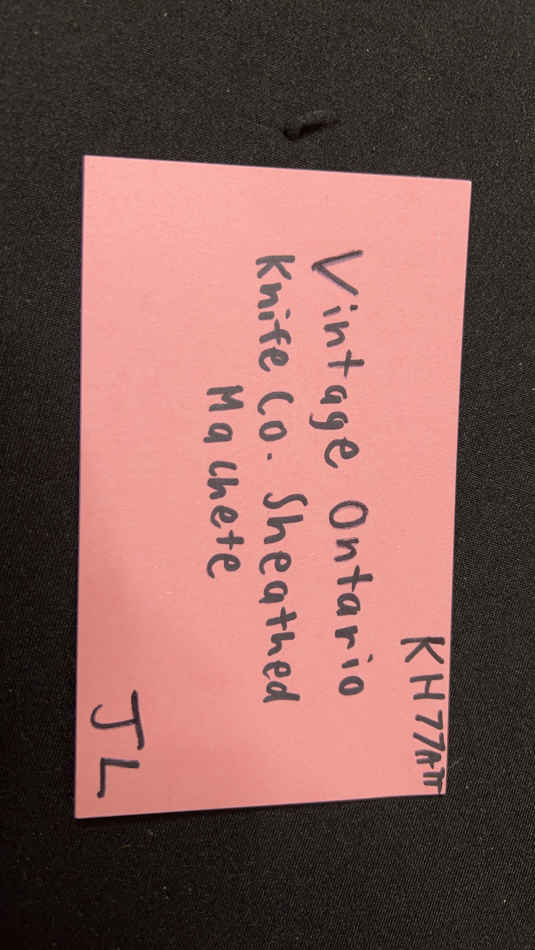 KH77AT
Vintage Ontario
Knife Co. Sheathed
Machete
JL